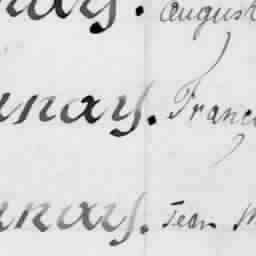 august
unay. Franc
unay. Jean M